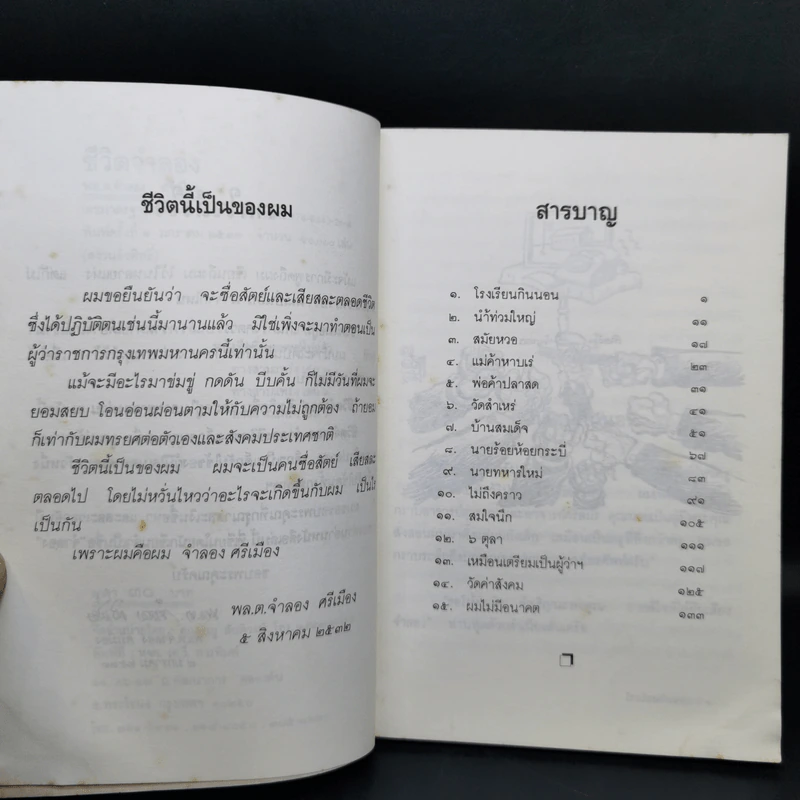 ชีวิตนี้เป็นของผม
ผมขอยืนยันว่า จะซื่อสัตย์และเสียสละตลอดชีวิต
ซึ่งได้ปฏิบัติตนเช่นนี้มานานแล้ว มิใช่เพิ่งจะมาทำตอนเป็น
ผู้ว่าราชการกรุงเทพมหานครนี้เท่านั้น
แม้จะมีอะไรมาข่มขู่ กดดัน บีบคั้น ก็ไม่มีวันที่ผมจะ
ยอมสยบ โอนอ่อนผ่อนตามให้กับความไม่ถูกต้อง ถ้ายอม
ก็เท่ากับผมทรยศต่อตัวเองและสังคมประเทศชาติ
ชีวิตนี้เป็นของผม ผมจะเป็นคนซื่อสัตย์ เสียสละ
ตลอดไป โดยไม่หวั่นไหวว่าอะไรจะเกิดขึ้นกับผม เป็นไง
เป็นกัน
เพราะผมคือผม จำลอง ศรีเมือง
พล.ต.จำลอง ศรีเมือง
๕ สิงหาคม ๒๕๓๒
สารบาญ
๑. โรงเรียนกินนอน ๑
๒. น้ำท่วมใหญ่ ๑๑
๓. สมัยหวอ ๑๗
๔. แม่ค้าหาบเร่ ๒๓
๕. พ่อค้าปลาสด ๓๑
๖. วัดสำเหร่ ๔๑
๗. บ้านสมเด็จ ๕๑
๘. นายร้อยห้อยกระบี่ ๖๗
๙. นายทหารใหม่ ๘๓
๑๐. ไม่ถึงคราว ๙๑
๑๑. สมใจนึก ๑๐๕
๑๒. ๖ ตุลา ๑๑๑
๑๓. เหมือนเตรียมเป็นผู้ว่าฯ ๑๑๗
๑๔. วัดค่าสังคม ๑๒๕
๑๕. ผมไม่มีอนาคต ๑๓๓